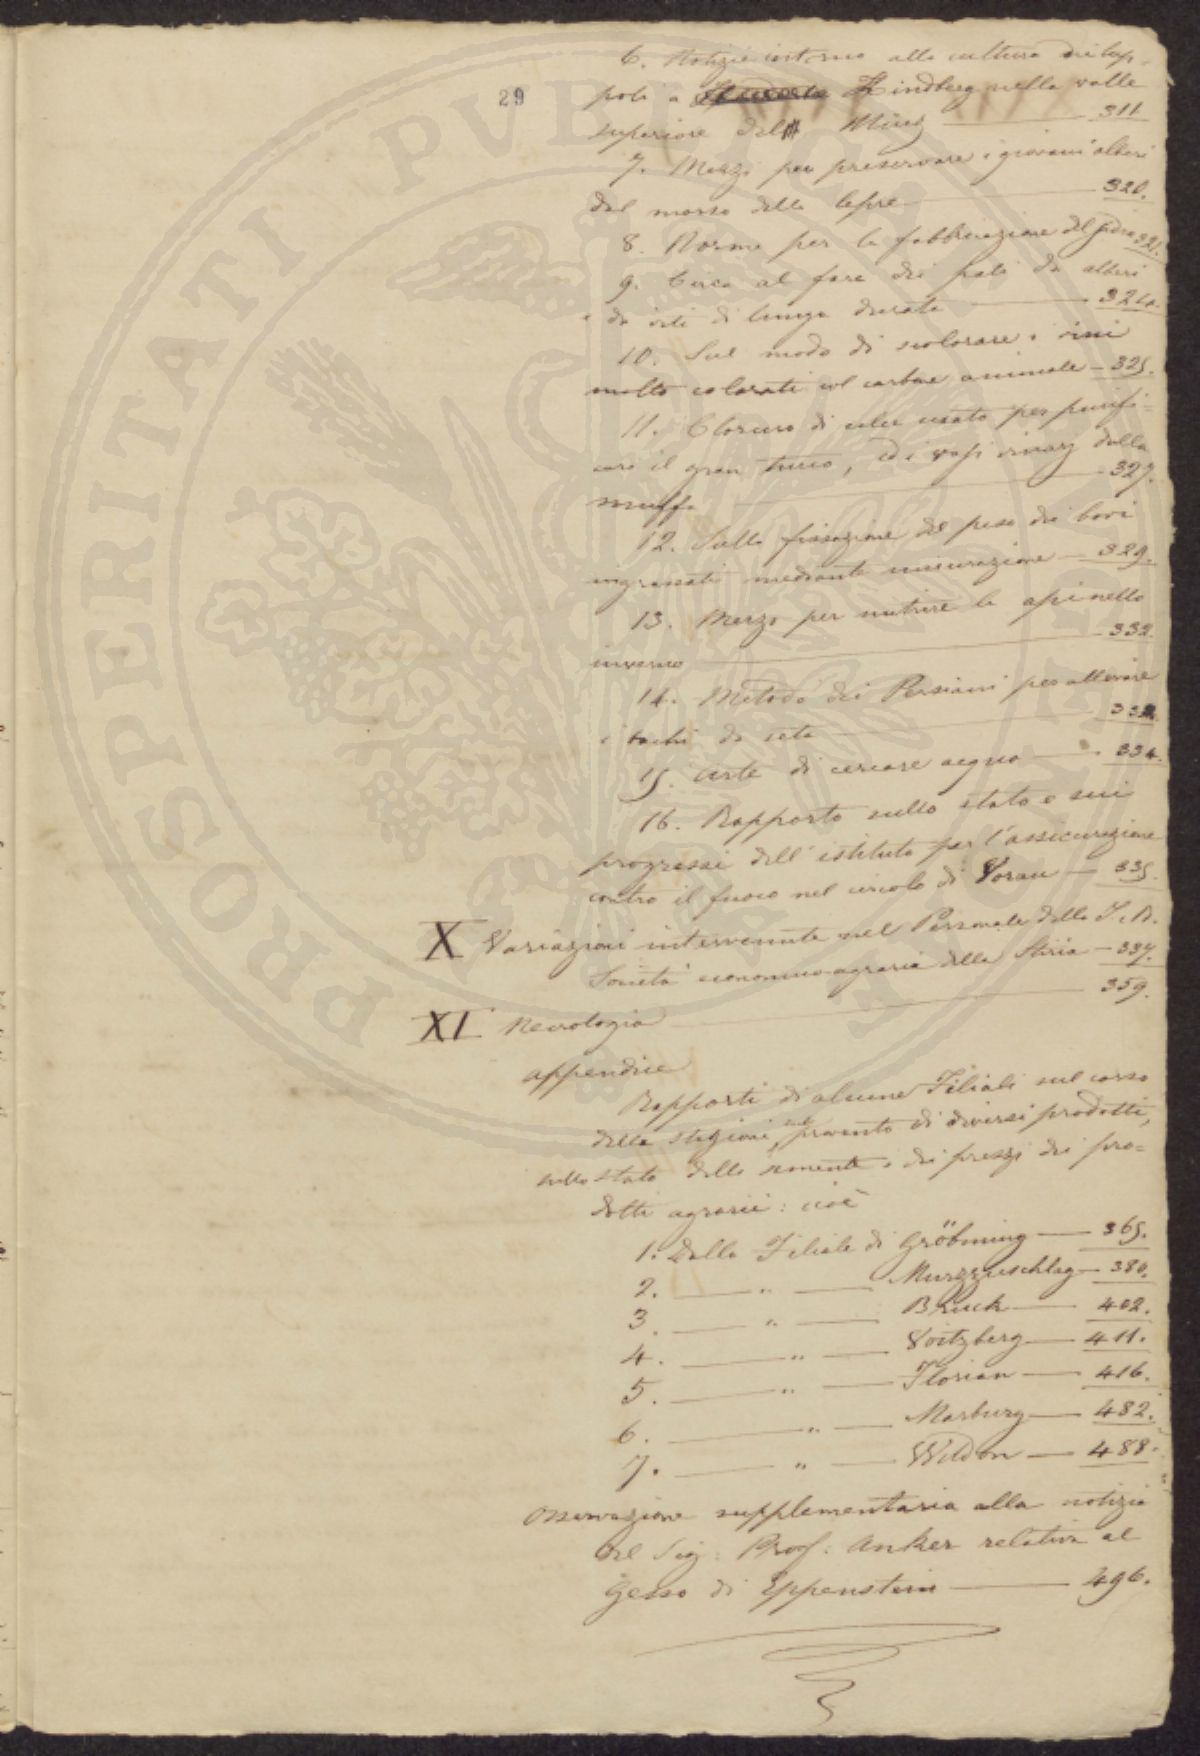 29
6. Notizie intorno alla cultura dei lup-
poli a Hindberg nella valle
superiore del Mürz — 311
7. Mezzi per preservare i giovani alberi
dal morso delle lepre — 320.
8. Norme per la fabbricazione del sidro 321.
9. Circa al fare dei pali da alberi
e da viti di lunga durata — 324.
10. Sul modo di scolorare i vini
molto colorati col carbone animale — 325.
11. Cloruro di calce usato per purifi-
care il gran turco, ed i vasi vinarj dalla
muffa — 327.
12. Sulla fissazione del peso dei bovi
ingrassati mediante misurazione — 329.
13. Mezzo per nutrire le api nello
inverno — 332.
14. Metodo dei Persiani per allevare
i bachi da seta — 332
15. Arte di cercare acqua — 334.
16. Rapporto sullo stato e sui
progressi dell'istituto per l'assicurazione
contro il fuoco nel circolo di Vorau — 335.
X Variazioni intervenute nel Personale della I. R.
Società economico-agraria della Stiria — 337.
XI Necrologia — 359.
appendice
Rapporti di alcune Filiali sul corso
delle stagioni, sul provento di diversi prodotti,
sullo stato delle semente e dei prezzi dei pro=
dotti agrarii: cioè
1. Dalla Filiale di Gröbming — 365.
2. — " — Murzzuschlag — 380.
3. — " — Bruck — 402.
4. — " — Voitzberg — 411.
5. — " — Florian — 416.
6. — " — Marburg — 482.
7. — " — Wildon — 488.
Osservazione supplementaria alla notizia
del Sig: Prof: Anker relativa al
Gesso di Eppenstein — 496.
PUBLICAE
PROSPERITATI